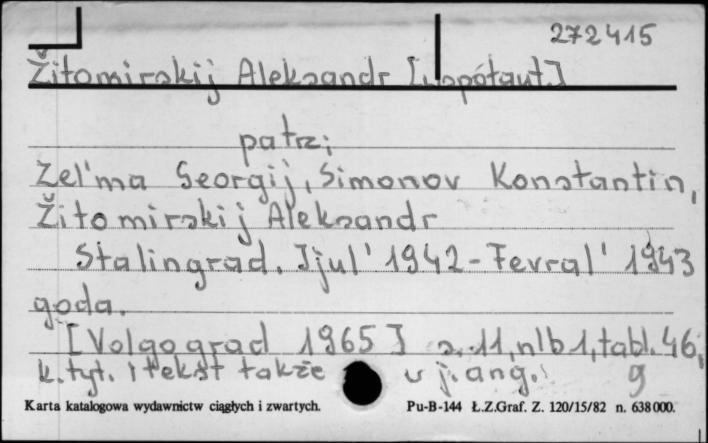 272415
Žitomirskij Aleksandr [współaut.]
patrz:
Zel'ma Georgij, Simonov Konstantin,
Žitomirskij Aleksandr
Stalingrad. Ijul' 1942-Fevral' 1943
goda.
[Volgograd 1965] s. 11, nlb 1, tabl. 46,
k. tyt. i tekst także w j. ang.
Karta katalogowa wydawnictw ciągłych i zwartych. Pu-B-144 Ł.Z.Graf. Z. 120/15/82 n. 638 000.